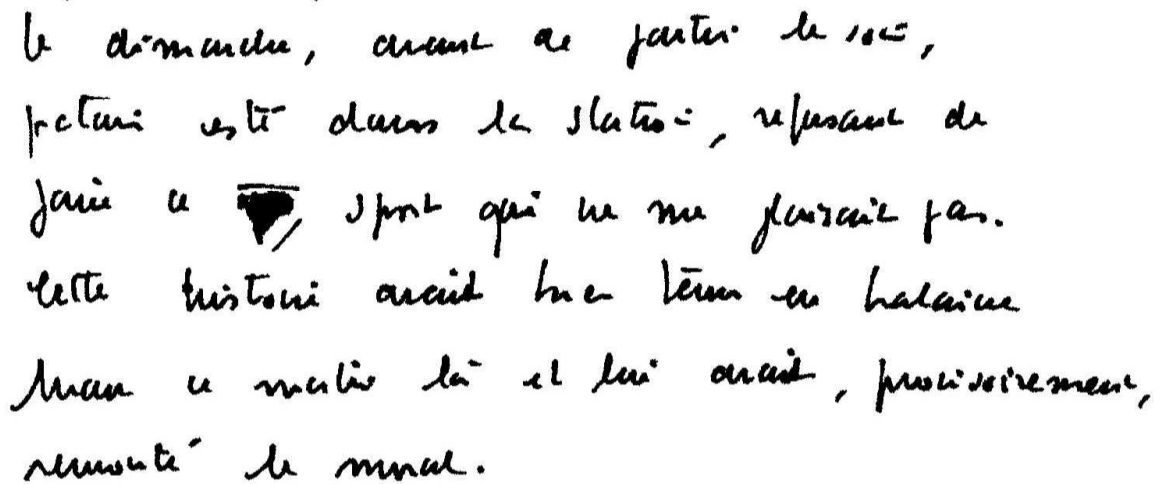 le dimanche, avant de partir le soir,
j'étais resté dans la station, refusant de
faire ce sport qui ne me plaisait pas.
Cette histoire avait bien tenu en haleine
ce matin là et lui avait, provisoirement,
remonté le moral.